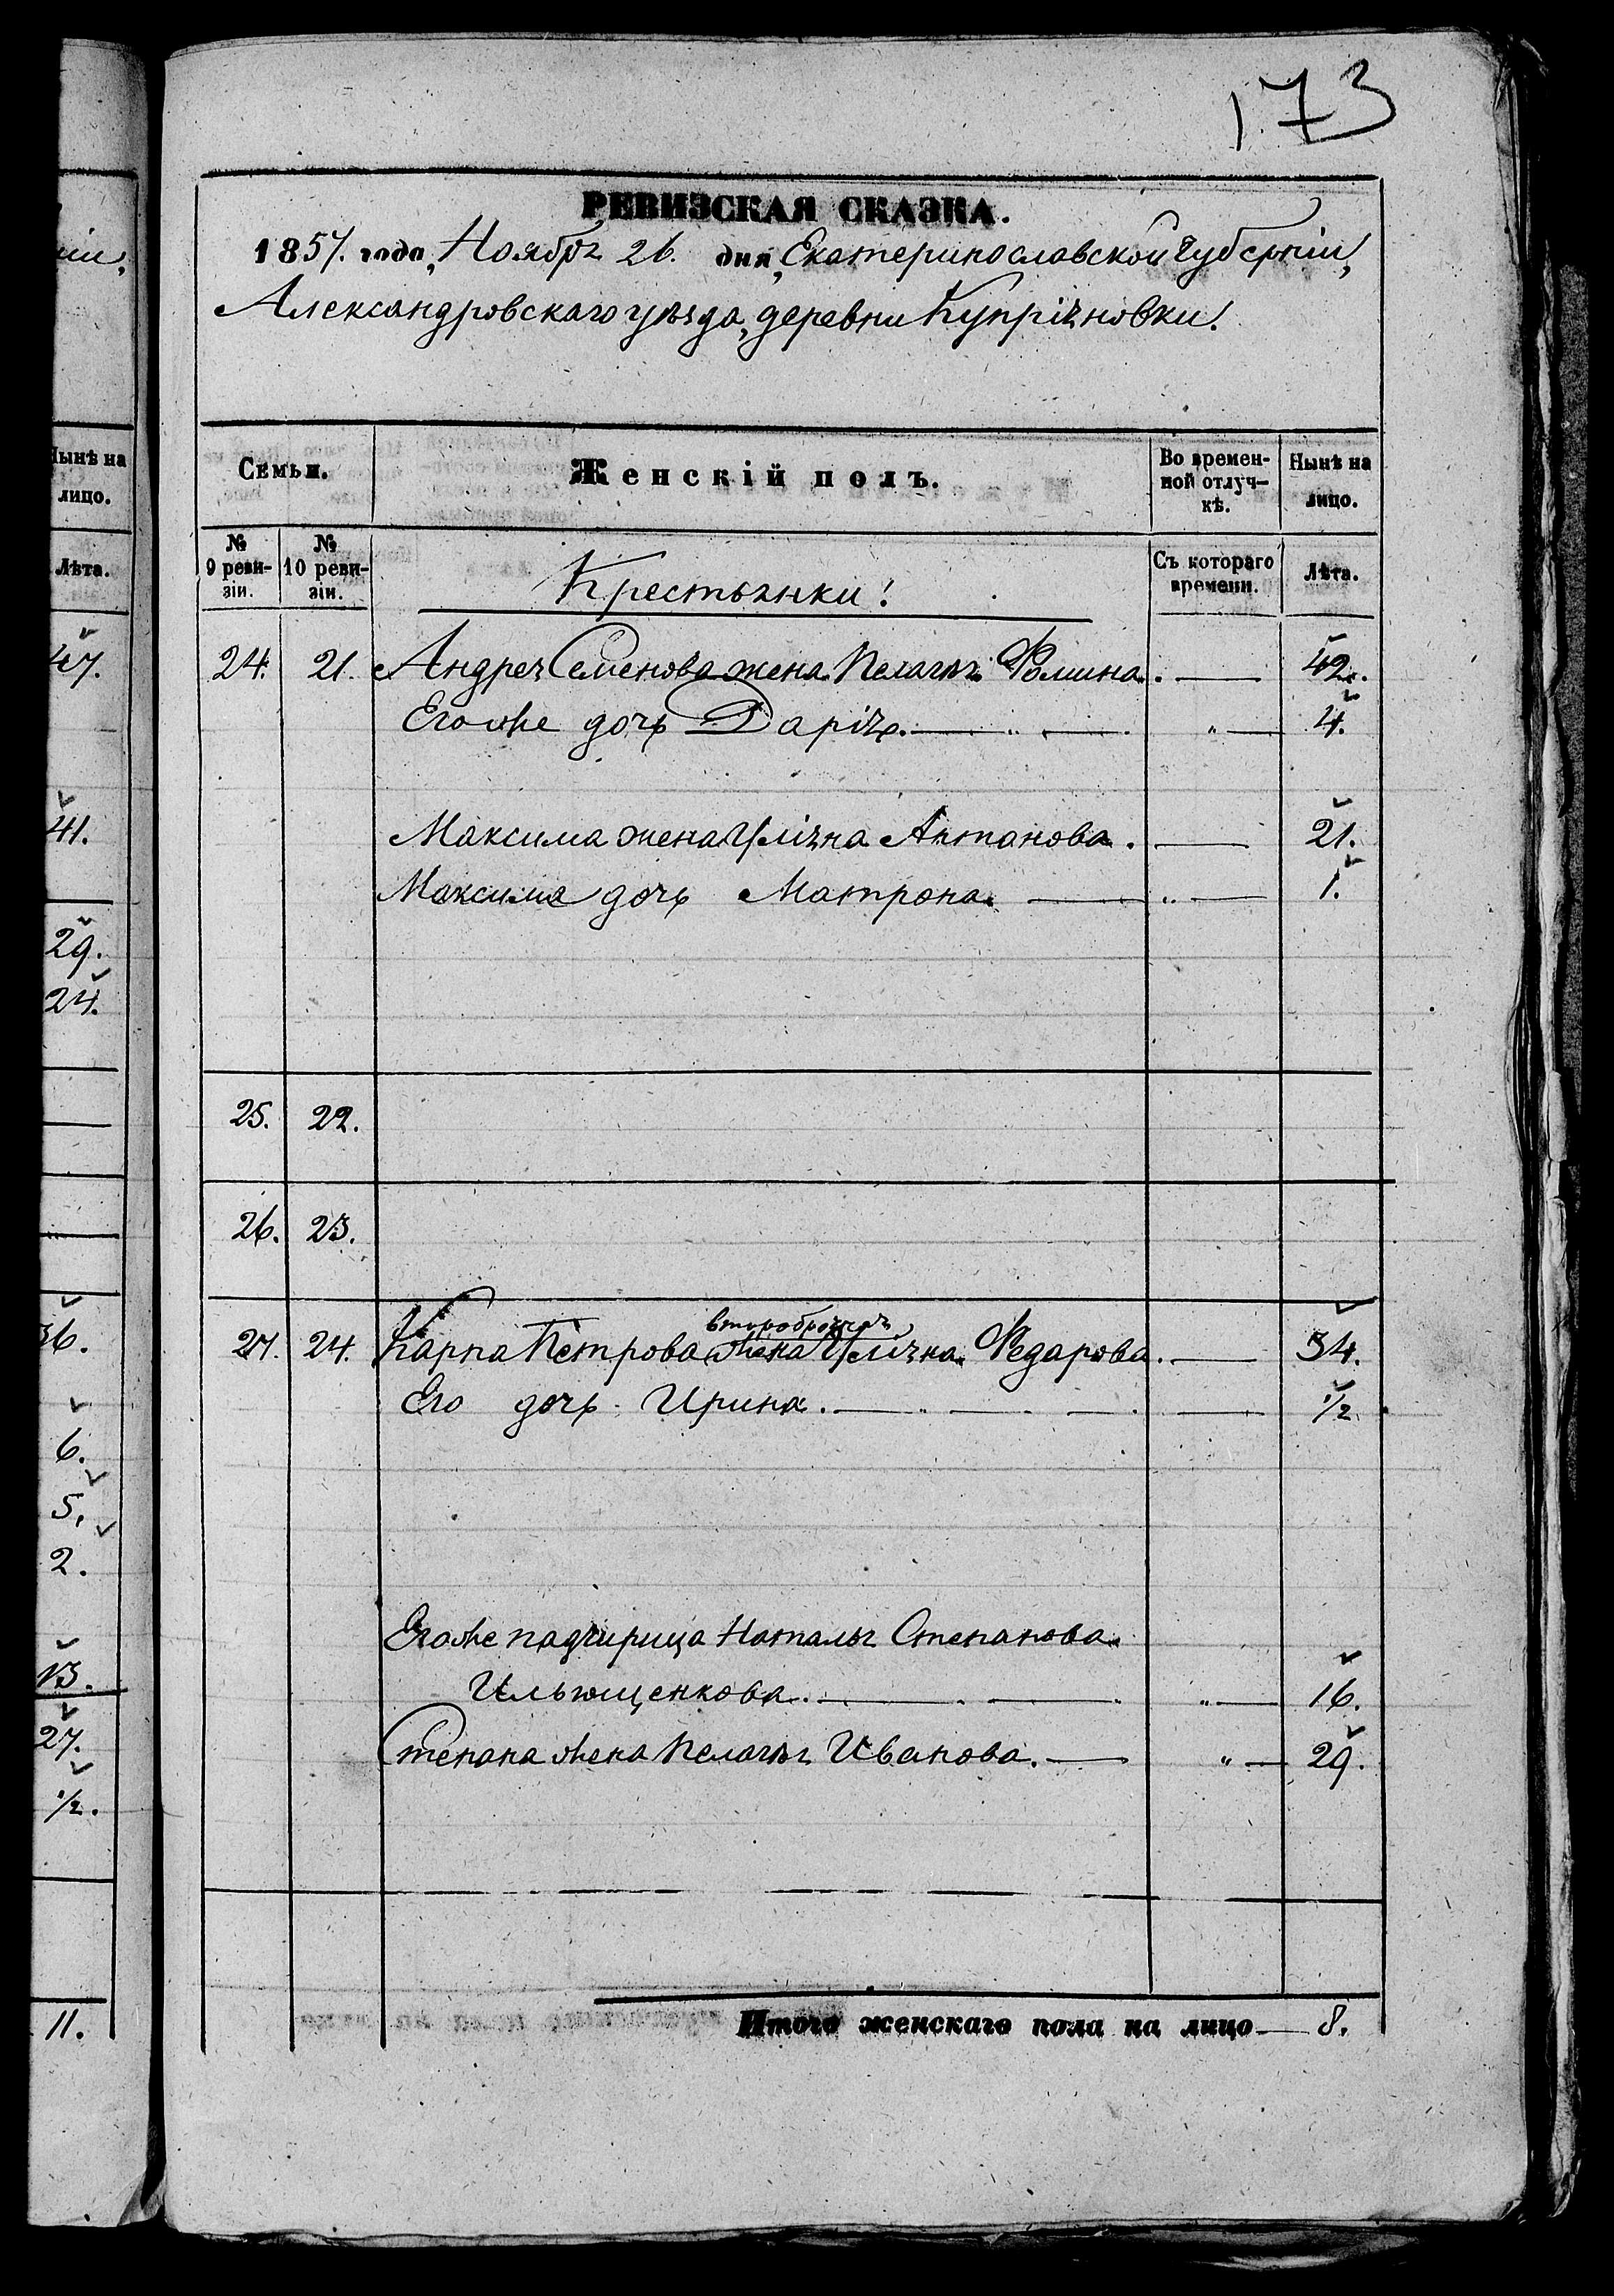 173
РЕВИЗСКАЯ СКАЗКА.
1857. года, Ноября 26. дня, Екатеринославской губерніи,
Александровскаго уѣзда, деревни Купріяновки.
Семьи. Женскій полъ. Во времен- Нынѣ на
ной отлуч- лицо.
кѣ.
№ № Съ котораго Лѣта.
9 реви- 10 реви- времени.
зіи. зіи. Крестьянки!
24. 21. Андрея Семенова жена Пелагѣя Фомина. — 42.
Егоже дочь Дарія. — " — 4.
Максима жена Уліяна Антонова. — 21.
Максима дочь Матрона — " — 1.
25. 22.
26. 23.
второбрачная
27. 24. Карпа Петрова жена Уліяна Федарова. — 34.
Его дочь Ирина. — 1/2
Егоже падчирица Наталья Степанова
Ильющенкова. — " — 16.
Степана жена Пелагѣя Иванова. — " — 29.
Итого женскаго пола на лицо — 8.
ніи,
Нынѣ на
лицо.
Лѣта.
47.
41.
29.
24.
36.
6.
5.
2.
13.
27.
1/2.
11.